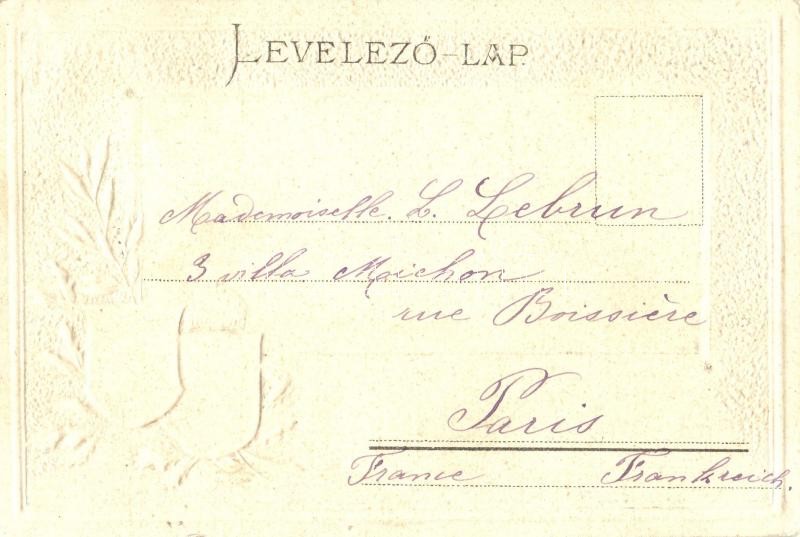 LEVELEZŐ-LAP
Mademoiselle. L. Lebrun
3 villa Moichon
rue Boissière
Paris
France Frankreich.